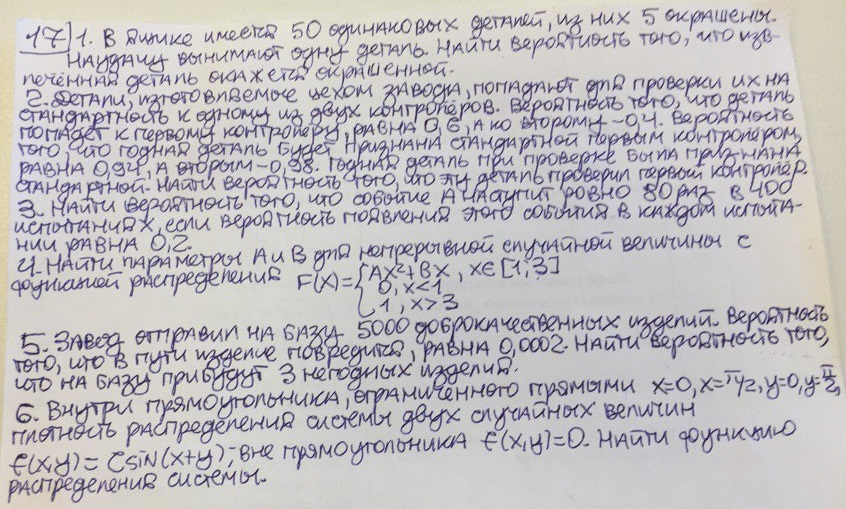 17) 1. В ящике имеется 50 одинаковых деталей, из них 5 окрашены.
Наудачу вынимают одну деталь. Найти вероятность того, что изв-
лечённая деталь окажется окрашенной.
2. Детали, изготовляемые цехом завода, попадают для проверки их на
стандартность к одному из двух контролёров. Вероятность того, что деталь
попадёт к первому контролёру, равна 0,6, а ко второму – 0,4. Вероятность
того, что годная деталь будет признана стандартной первым контролёром,
равна 0,94, а вторым – 0,98. Годная деталь при проверке была признана
стандартной. Найти вероятность того, что эту деталь проверил первый контролёр.
3. Найти вероятность того, что событие А наступит ровно 80 раз в 400
испытаниях, если вероятность появления этого события в каждом испыта-
нии равна 0,2.
4. Найти параметры А и В для непрерывной случайной величины с
функцией распределения F(x)={Ax²+Bx, x∈[1;3]
0, x<1
1, x>3
5. Завод отправил на базу 5000 доброкачественных изделий. Вероятность
того, что в пути изделие повредится, равна 0,0002. Найти вероятность того,
что на базу прибудут 3 негодных изделия.
6. Внутри прямоугольника, ограниченного прямыми x=0, x=π/2, y=0, y=π/2,
плотность распределения системы двух случайных величин
f(x,y)= C sin(x+y); вне прямоугольника f(x,y)=0. Найти функцию
распределения системы.